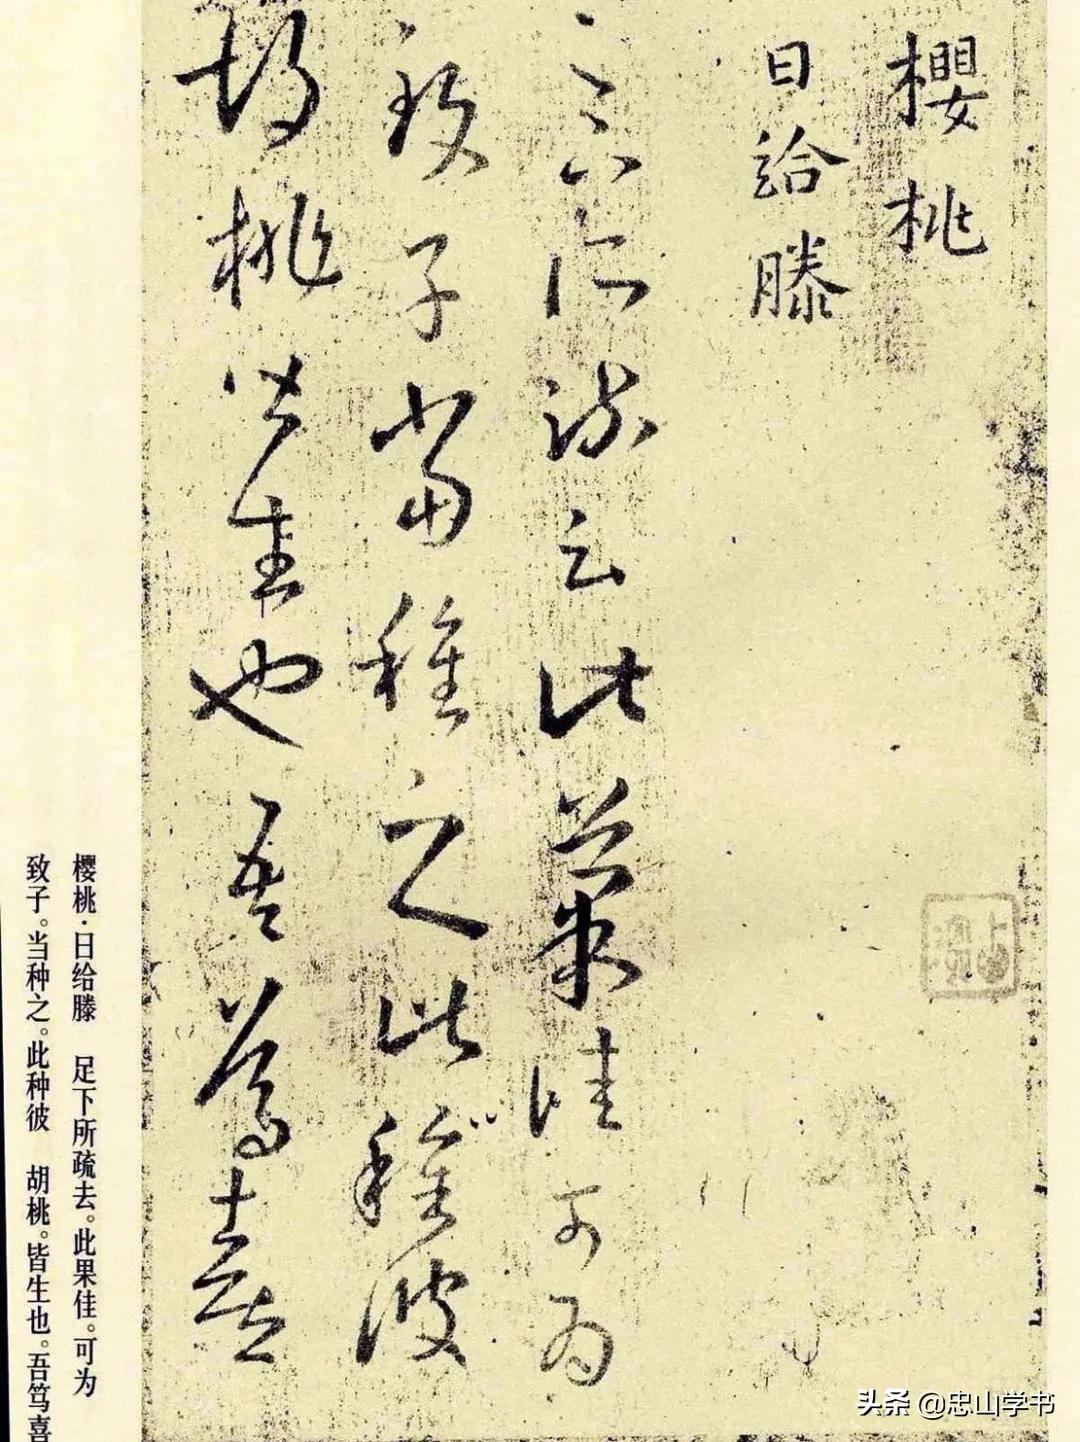 櫻桃
日給滕
足下所疏云此菓佳可為
致子當種之此種彼
胡桃皆生也吾篤喜
樱桃·日给滕　足下所疏去。此果佳。可为
致子。当种之。此种彼　胡桃。皆生也。吾笃喜
头条 @忠山学书